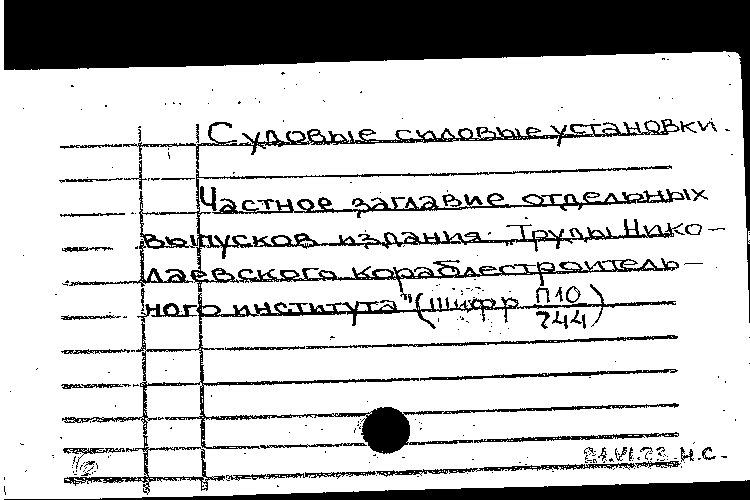 Судовые силовые установки.
Частное заглавие отдельных
выпусков издания: „Труды Нико-
лаевского кораблестроитель-
ного института" (шифр П10/244)
16
21.VI.73 Н.С.